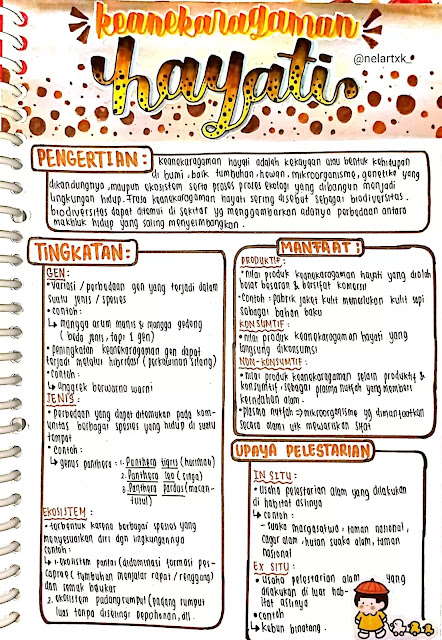 keanekaragaman
hayati
@nelartxk_
PENGERTIAN:
keanekaragaman hayati adalah kekayaan atau bentuk kehidupan
di bumi, baik tumbuhan, hewan, mikroorganisme, genetika yang
dikandungnya, maupun ekosistem serta proses proses ekologi yang dibangun menjadi
lingkungan hidup. Frasa keanekaragaman hayati sering disebut sebagai biodiversitas.
biodiversitas dapat ditemui di sekitar yg menggambarkan adanya perbedaan antara
makhluk hidup yang saling menyeimbangkan.
TINGKATAN:
GEN:
• variasi / perbedaan gen yang terjadi dalam
suatu jenis / spesies
• contoh:
↳ mangga arum manis & mangga gedong
( beda jenis, tapi 1 gen)
• peningkatan keanekaragaman gen dapat
terjadi melalui hibridasi (perkawinan silang)
• contoh:
↳ anggrek berwarna warni
JENIS:
• perbedaan yang dapat ditemukan pada kom-
unitas berbagai spesies yang hidup di suatu
tempat
• contoh:
↳ genus panthera : 1. Panthera tigris (harimau)
2. Panthera leo (singa)
3. Panthera pardus (macan-
tutul)
EKOSISTEM:
• terbentuk karena berbagai spesies yang
menyesuaikan diri dgn lingkungannya
contoh:
↳ 1. ekosistem pantai (didominasi formasi pes-
caproe (tumbuhan menjalar rapat / renggang)
dan semak baukar
2. ekosistem padang rumput (padang rumput
luas tanpa diselingi pepohonan, dll.
MANFAAT:
PRODUKTIF:
• nilai produk keanekaragaman hayati yang diolah
besar besaran & bersifat komersil
• Contoh : pabrik jaket kulit memerlukan kulit sapi
sebagai bahan baku
KONSUMTIF:
• nilai produk keanekaragaman hayati yang
langsung dikonsumsi
NON-KONSUMTIF:
• nilai produk keanekaragaman selain produktif &
konsumtif, sebagai plasma nutfah yang memberi
keindahan alam.
• plasma nutfah ⇒ mikroorganisme yg dimanfaatkan
secara alami utk mewariskan sifat
UPAYA PELESTARIAN
IN SITU:
• usaha pelestarian alam yang dilakukan
di habitat aslinya
↳ contoh:
- suaka margasatwa, taman nasional,
cagar alam, hutan suaka alam, taman
nasional
EX SITU:
• usaha pelestarian alam yang
dilakukan di luar hab-
itat aslinya
• contoh
↳ kebun binatang.